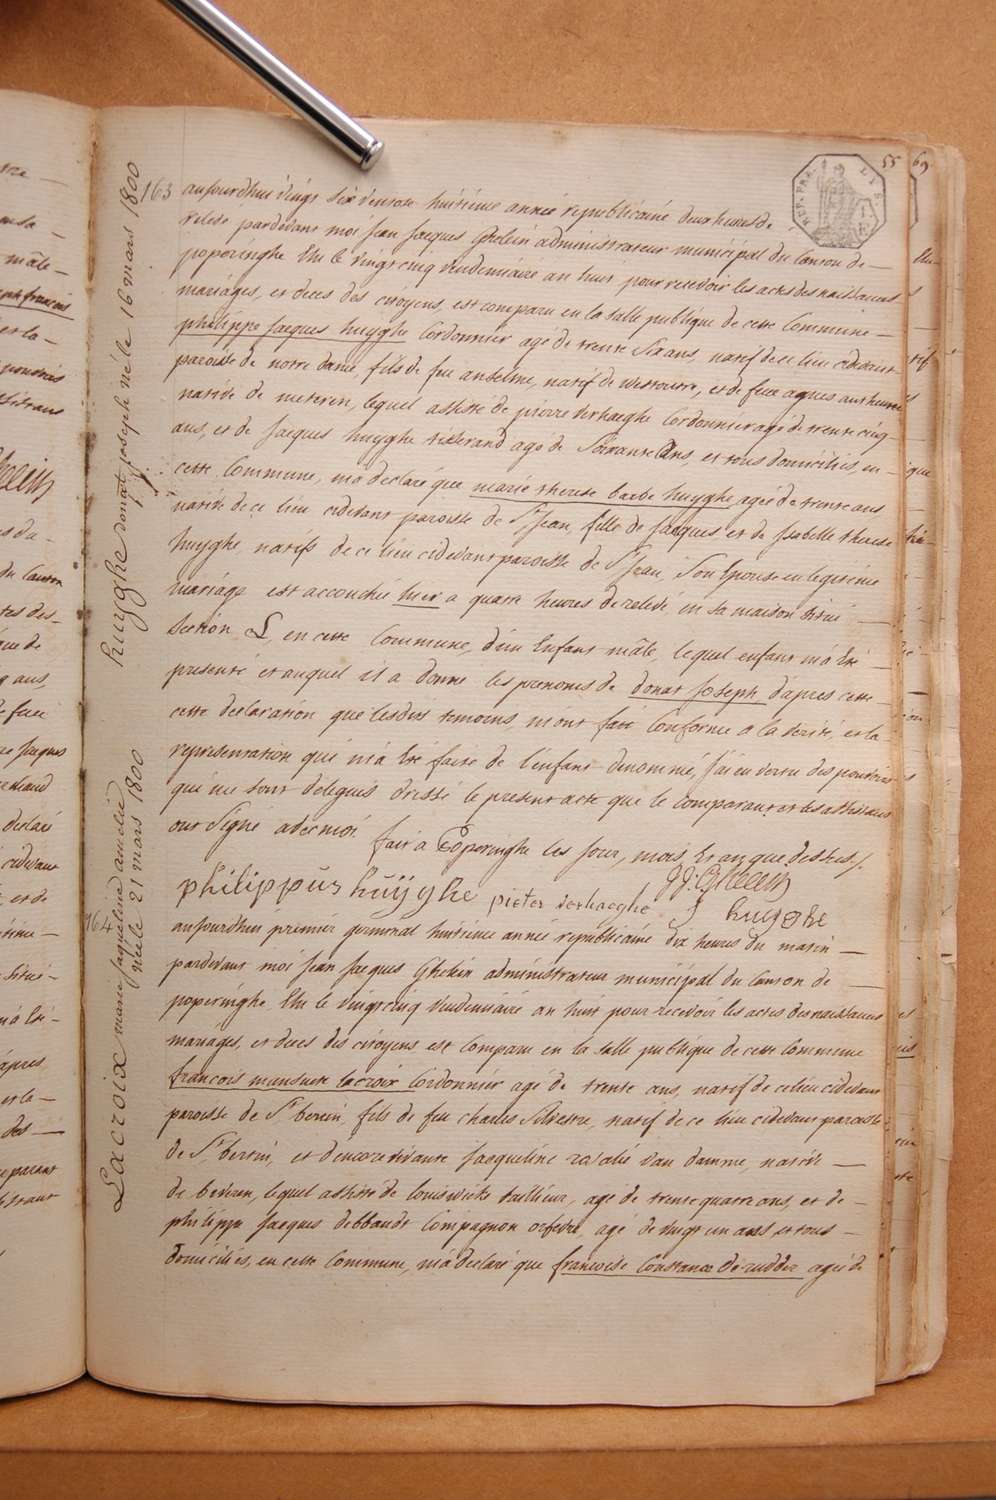 55
69
REP. FRA.
163
huyghe donat joseph né le 16 mars 1800
aujourdhui vingt six ventose huitieme année republicaine deux heures de
relevé pardevant moi jean jacques Ghelein administrateur municipal du canton de
poperinghe Elu le vingt cinq vendemiaire an huit pour recevoir les actes des naissances
mariages, et deces des citoyens, est comparu en la salle publique de cette Commune
philippe jacques huyghe Cordonnier agé de trente six ans, natif de ce lieu cidevant
paroisse de notre dame, fils de feu anselme, natif de westoutre, et de feue agnes
native de meteren, lequel assisté de pierre verhaeghe Cordonnier agé de trente cinq
ans, et de jacques huyghe tisserand agé de soixante ans, et tous domiciliés, en
cette Commune, m'a declaré que marie therese barbe huyghe agée de trente ans
native de ce lieu cidevant paroisse de St jean, fille de jacques et de Isabelle therese
huyghe natifs de ce lieu cidevant paroisse de St jean, son Epouse en legitime
mariage est accouchée hier a quatre heures de relevé en sa maison situé
section L en cette Commune, d'un Enfant mâle, lequel enfant m'a Eté
presenté et auquel il a donné les prenoms de donat joseph d'apres cette
cette declaration que lesdits temoins, m'ont fait conforme a la verité, et la
representation qui m'a Eté faite de l'enfant denommé, j'ai en vertu des pouvoirs
qui me sont delegués dressé le present acte que le comparant et les assistans
ont signé avec moi.
fait a Poperinghe les jour, mois, Et an que dessus /.
philippus huÿghe pieter verhaeghe J huyghe
J.J. Ghelein
164
Lacroix marie jaqueline amelie née le 21 mars 1800
aujourdhui premier germinal huitieme année republicaine dix heures du matin
pardevant moi jean jacques Ghelein administrateur municipal du canton de
poperinghe Elu le vingt cinq vendemiaire an huit pour recevoir les actes des naissances
mariages, et deces des citoyens est comparu en la salle publique de cette Commune
francois mansuete lacroix Cordonnier agé de trente ans, natif de ce lieu cidevant
paroisse de St bertin, fils de feu charles silvestre, natif de ce lieu cidevant paroisse
de St bertin, et d'encore vivante jacqueline rosalie van damme, native
de beveren, lequel assisté de louis tailleur, agé de trente quatre ans, et de
philippe jacques debbaudt Compagnon orfebvre, agé de vingt un ans et tous
domiciliés, en cette Commune, m'a declaré que francoise Constance de rudder agée de